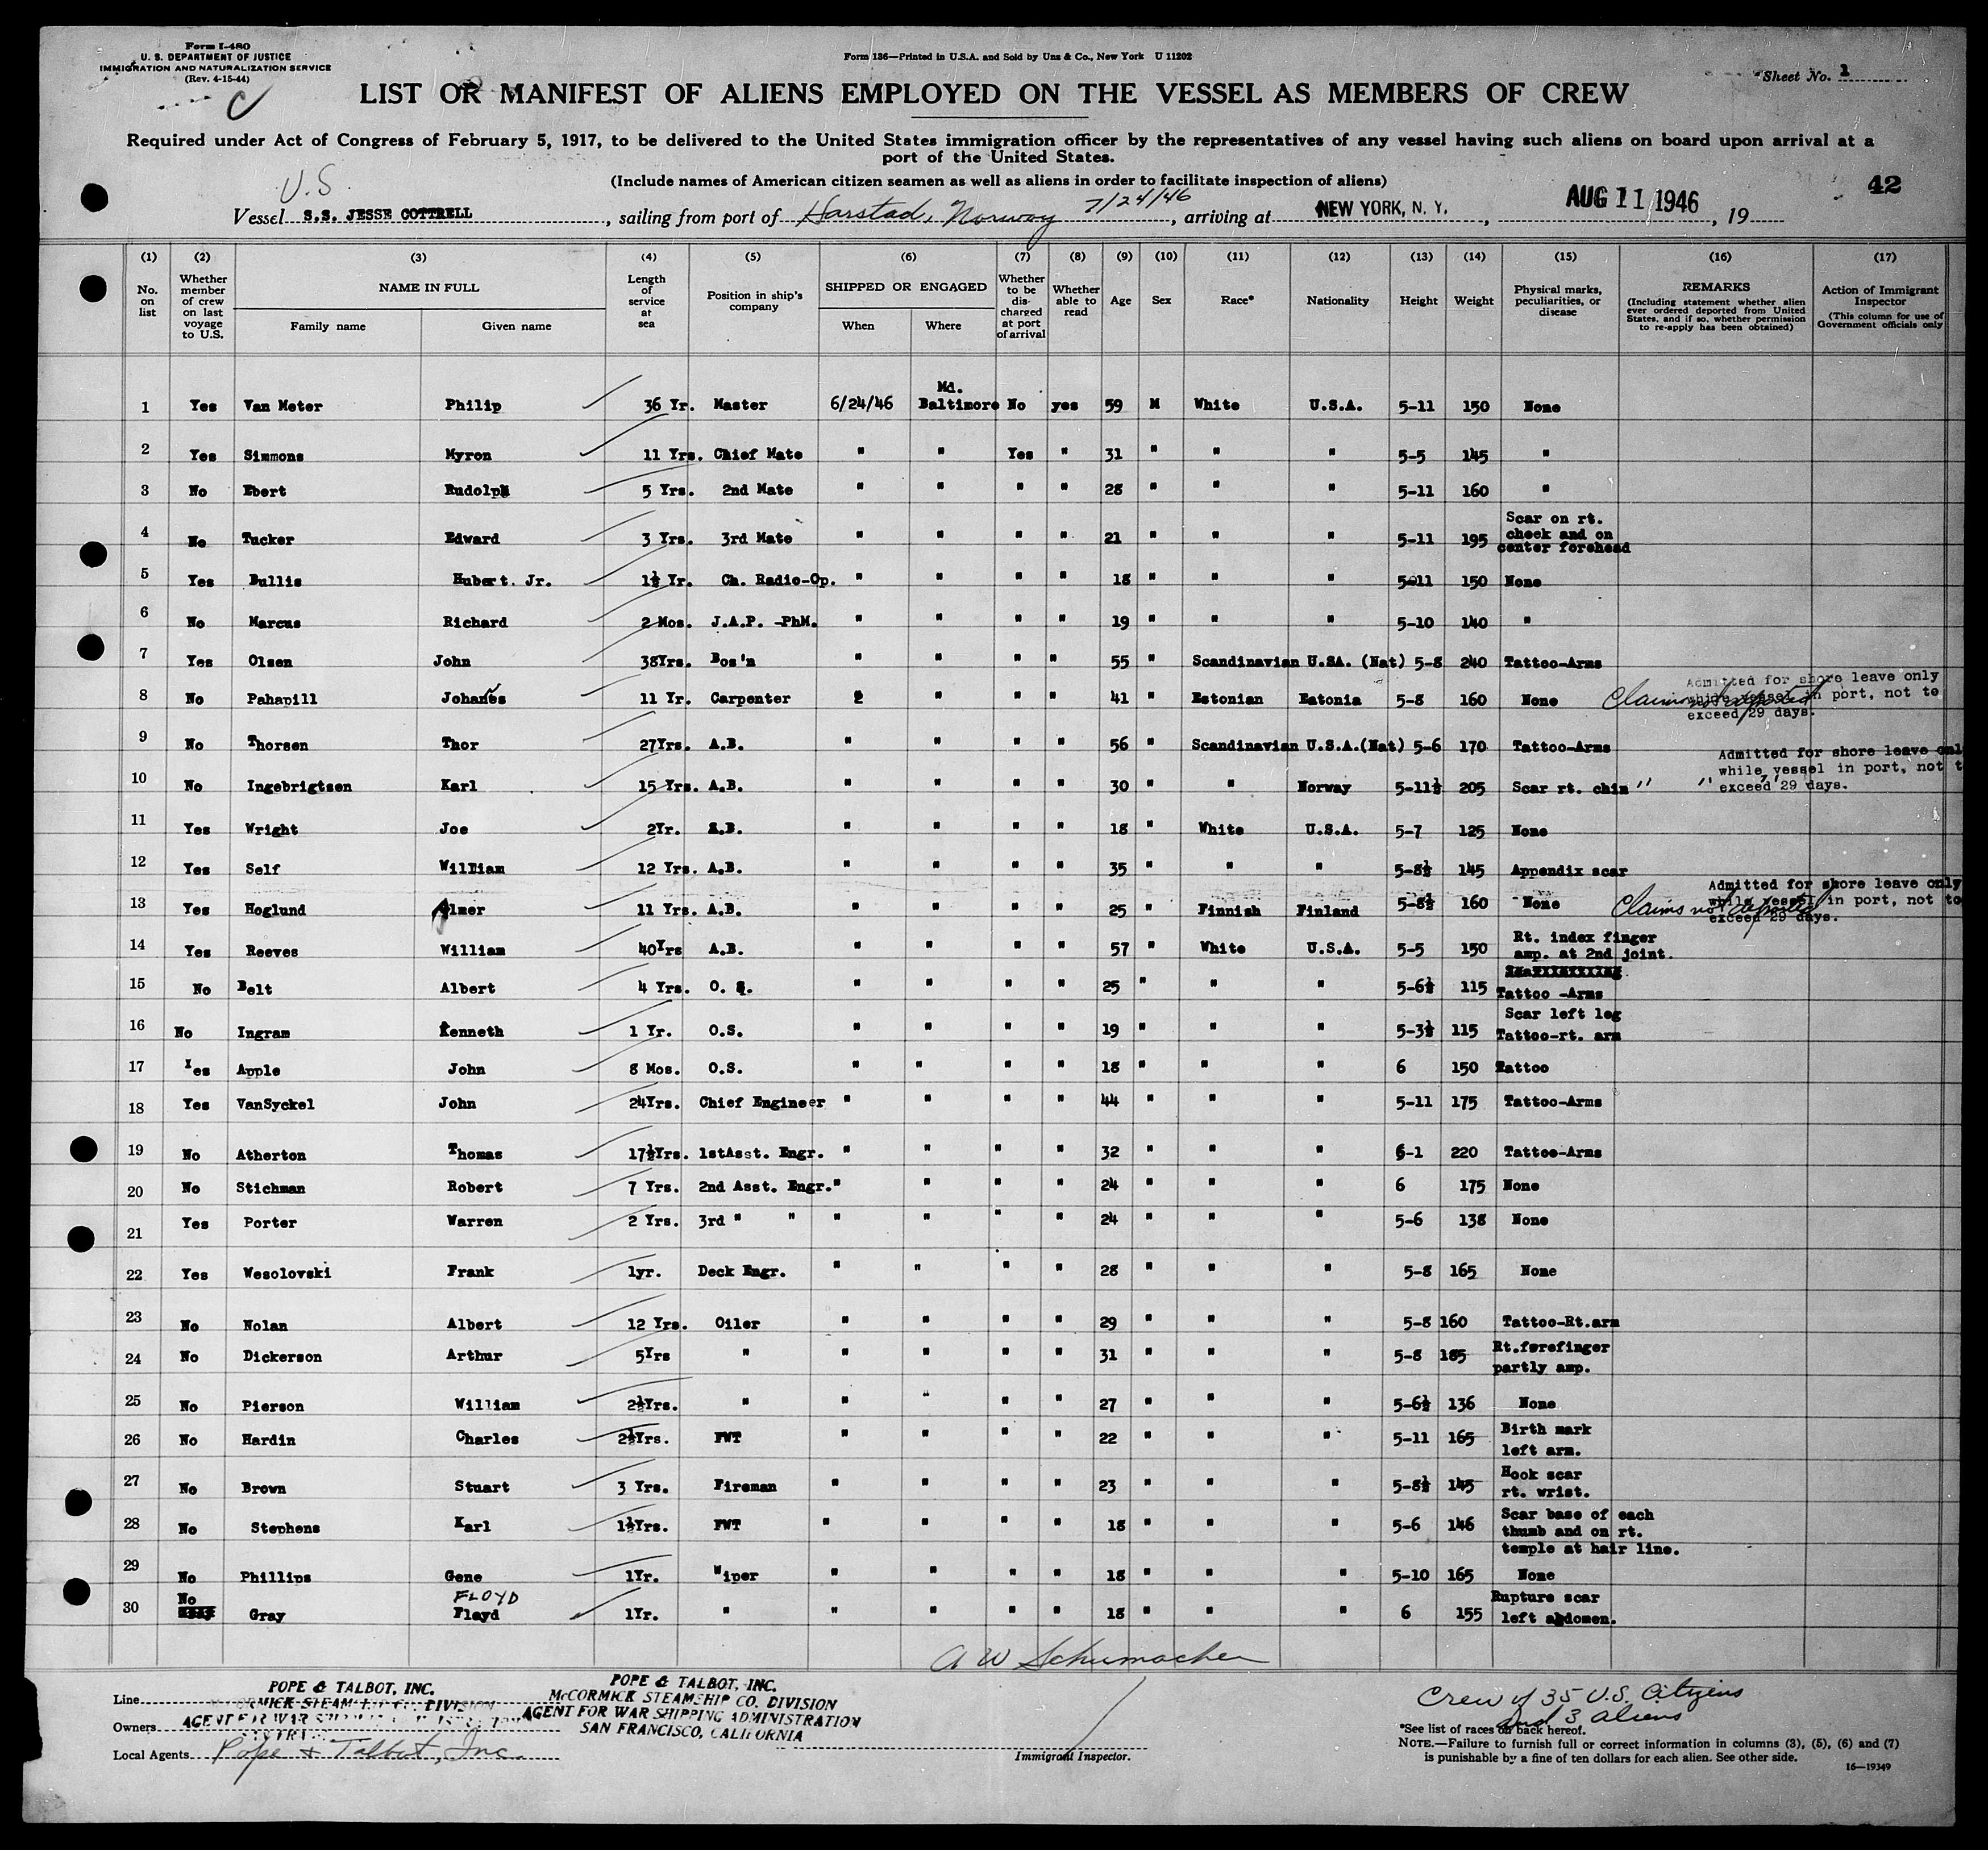 Form I-480
U. S. DEPARTMENT OF JUSTICE
IMMIGRATION AND NATURALIZATION SERVICE
(Rev. 4-15-44)
C
Form 136—Printed in U.S.A. and Sold by Unz & Co., New York U 11202
Sheet No. 1
LIST OR MANIFEST OF ALIENS EMPLOYED ON THE VESSEL AS MEMBERS OF CREW
Required under Act of Congress of February 5, 1917, to be delivered to the United States immigration officer by the representatives of any vessel having such aliens on board upon arrival at a
port of the United States.
(Include names of American citizen seamen as well as aliens in order to facilitate inspection of aliens)
42
U.S.
Vessel S.S. JESSE COTTRELL, sailing from port of Harstad, Norway 7/24/46, arriving at NEW YORK, N. Y., AUG 11 1946, 19
(1) (2) (3) (4) (5) (6) (7) (8) (9) (10) (11) (12) (13) (14) (15) (16) (17)
No. on list
Whether member of crew on last voyage to U.S.
NAME IN FULL
Family name Given name
Length of service at sea
Position in ship's company
SHIPPED OR ENGAGED
When Where
Whether to be discharged at port of arrival
Whether able to read
Age Sex Race* Nationality Height Weight
Physical marks, peculiarities, or disease
REMARKS
(Including statement whether alien ever ordered deported from United States, and if so, whether permission to re-apply has been obtained)
Action of Immigrant Inspector
(This column for use of Government officials only
1 Yes Van Meter Philip 36 Yr. Master 6/24/46 Md. Baltimore No yes 59 M White U.S.A. 5-11 150 None
2 Yes Simmons Myron 11 Yrs. Chief Mate " " Yes " 31 " " " 5-5 145 "
3 No Ebert Rudolph 5 Yrs. 2nd Mate " " " " 28 " " " 5-11 160 "
4 No Tucker Edward 3 Yrs. 3rd Mate " " " " 21 " " " 5-11 195 Scar on rt. cheek and on center forehead
5 Yes Bullis Hubert. Jr. 1½ Yr. Ch. Radio-Op. " " " " 18 " " " 5-11 150 None
6 No Marcus Richard 2 Mos. J.A.P. -PhM. " " " " 19 " " " 5-10 140 "
7 Yes Olsen John 38Yrs. Bos'n " " " " 55 " Scandinavian U.SA. (Nat) 5-8 240 Tattoo-Arms
8 No Pahapill Johannes 11 Yr. Carpenter " " " " 41 " Estonian Estonia 5-8 160 None Claims not deported Admitted for shore leave only while vessel in port, not to exceed 29 days.
9 No Thorsen Thor 27Yrs. A.B. " " " " 56 " Scandinavian U.S.A.(Nat) 5-6 170 Tattoo-Arms
10 No Ingebrigtsen Karl 15 Yrs. A.B. " " " " 30 " " Norway 5-11½ 205 Scar rt. chin " " " Admitted for shore leave only while vessel in port, not t exceed 29 days.
11 Yes Wright Joe 2Yr. A.B. " " " " 18 " White U.S.A. 5-7 125 None
12 Yes Self William 12 Yrs. A.B. " " " " 35 " " " 5-8½ 145 Appendix scar
13 Yes Hoglund Almer 11 Yrs. A.B. " " " " 25 " Finnish Finland 5-8½ 160 None Claims not deported Admitted for shore leave only while vessel in port, not to exceed 29 days.
14 Yes Reeves William 40Yrs A.B. " " " " 57 " White U.S.A. 5-5 150 Rt. index finger amp. at 2nd joint.
15 No Belt Albert 4 Yrs. O. S. " " " " 25 " " " 5-6½ 115 Tattoo -Arms
16 No Ingram Kenneth 1 Yr. O.S. " " " " 19 " " " 5-3½ 115 Scar left leg Tattoo-rt. arm
17 Yes Apple John 8 Mos. O.S. " " " " 18 " " " 6 150 Tattoo
18 Yes VanSyckel John 24Yrs. Chief Engineer " " " " 44 " " " 5-11 175 Tattoo-Arms
19 No Atherton Thomas 17½Yrs. 1stAsst. Engr. " " " " 32 " " " 6-1 220 Tattoo-Arms
20 No Stichman Robert 7 Yrs. 2nd Asst. Engr." " " " 24 " " " 6 175 None
21 Yes Porter Warren 2 Yrs. 3rd " " " " " " 24 " " " 5-6 138 None
22 Yes Wesolovski Frank 1yr. Deck Engr. " " " " 28 " " " 5-8 165 None
23 No Nolan Albert 12 Yrs. Oiler " " " " 29 " " " 5-8 160 Tattoo-Rt.arm
24 No Dickerson Arthur 5Yrs " " " " " 31 " " " 5-8 185 Rt.forefinger partly amp.
25 No Pierson William 2½Yrs. " " " " " 27 " " " 5-6½ 136 None
26 No Hardin Charles 2½Yrs. FWT " " " " 22 " " " 5-11 165 Birth mark left arm.
27 No Brown Stuart 3 Yrs. Fireman " " " " 23 " " " 5-8½ 145 Hook scar rt. wrist.
28 No Stephens Karl 1½Yrs. FWT " " " " 18 " " " 5-6 146 Scar base of each thumb and on rt. temple at hair line.
29 No Phillips Gene 1Yr. Wiper " " " " 18 " " " 5-10 165 None
30 No Gray FLOYD Floyd 1Yr. " " " " " 18 " " " 6 155 Rupture scar left abdomen.
A W Schumacher
Line POPE & TALBOT, INC.
McCORMICK STEAMSHIP CO. DIVISION
Owners AGENT FOR WAR SHIPPING ADMINISTRATION
POPE & TALBOT, INC.
McCORMICK STEAMSHIP CO. DIVISION
AGENT FOR WAR SHIPPING ADMINISTRATION
SAN FRANCISCO, CALIFORNIA
Local Agents Pope & Talbot, Inc.
Immigrant Inspector.
Crew of 35 U.S. Citizens
and 3 aliens
*See list of races on back hereof.
NOTE.—Failure to furnish full or correct information in columns (3), (5), (6) and (7)
is punishable by a fine of ten dollars for each alien. See other side.
16—19349